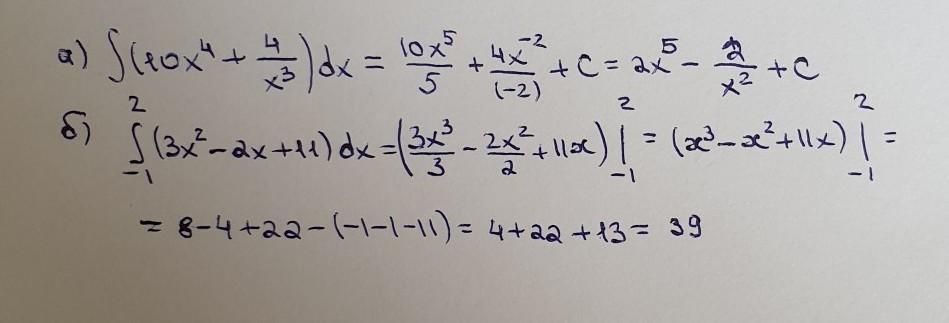 а) ∫(10x⁴ + 4/x³)dx = 10x⁵/5 + 4x⁻²/(-2) + C = 2x⁵ - 2/x² + C
б) ∫₋₁² (3x² - 2x + 11)dx = (3x³/3 - 2x²/2 + 11x)|₋₁² = (x³ - x² + 11x)|₋₁² =
= 8-4+22-(-1-1-11) = 4+22+13 = 39